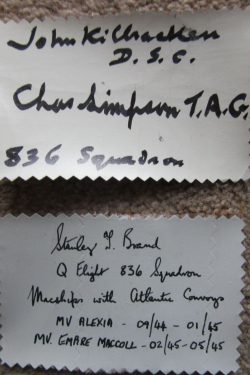 John Killracken
D.S.C.
Chas Simpson T.A.G.
836 Squadron
Stanley G. Brand
Q Flight 836 Squadron
Macships with Atlantic Convoys
MV ALEXIA - 09/44 - 01/45
MV. EMPIRE MACCOLL - 02/45 - 05/45